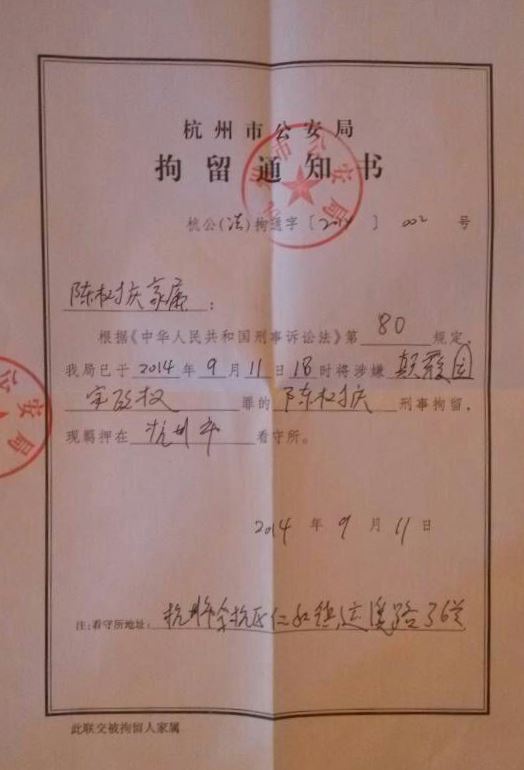 杭州市公安局
拘留通知书
杭公(法)拘通字〔2014〕002号
陈树庆家属:
根据《中华人民共和国刑事诉讼法》第 80 规定
我局已于 2014 年 9 月 11 日 18 时将涉嫌 颠覆国
家政权 罪的 陈树庆 刑事拘留,
现羁押在 杭州市 看守所。
2014 年 9 月 11 日
注:看守所地址: 杭州市余杭区仁和镇运溪路 号
此联交被拘留人家属